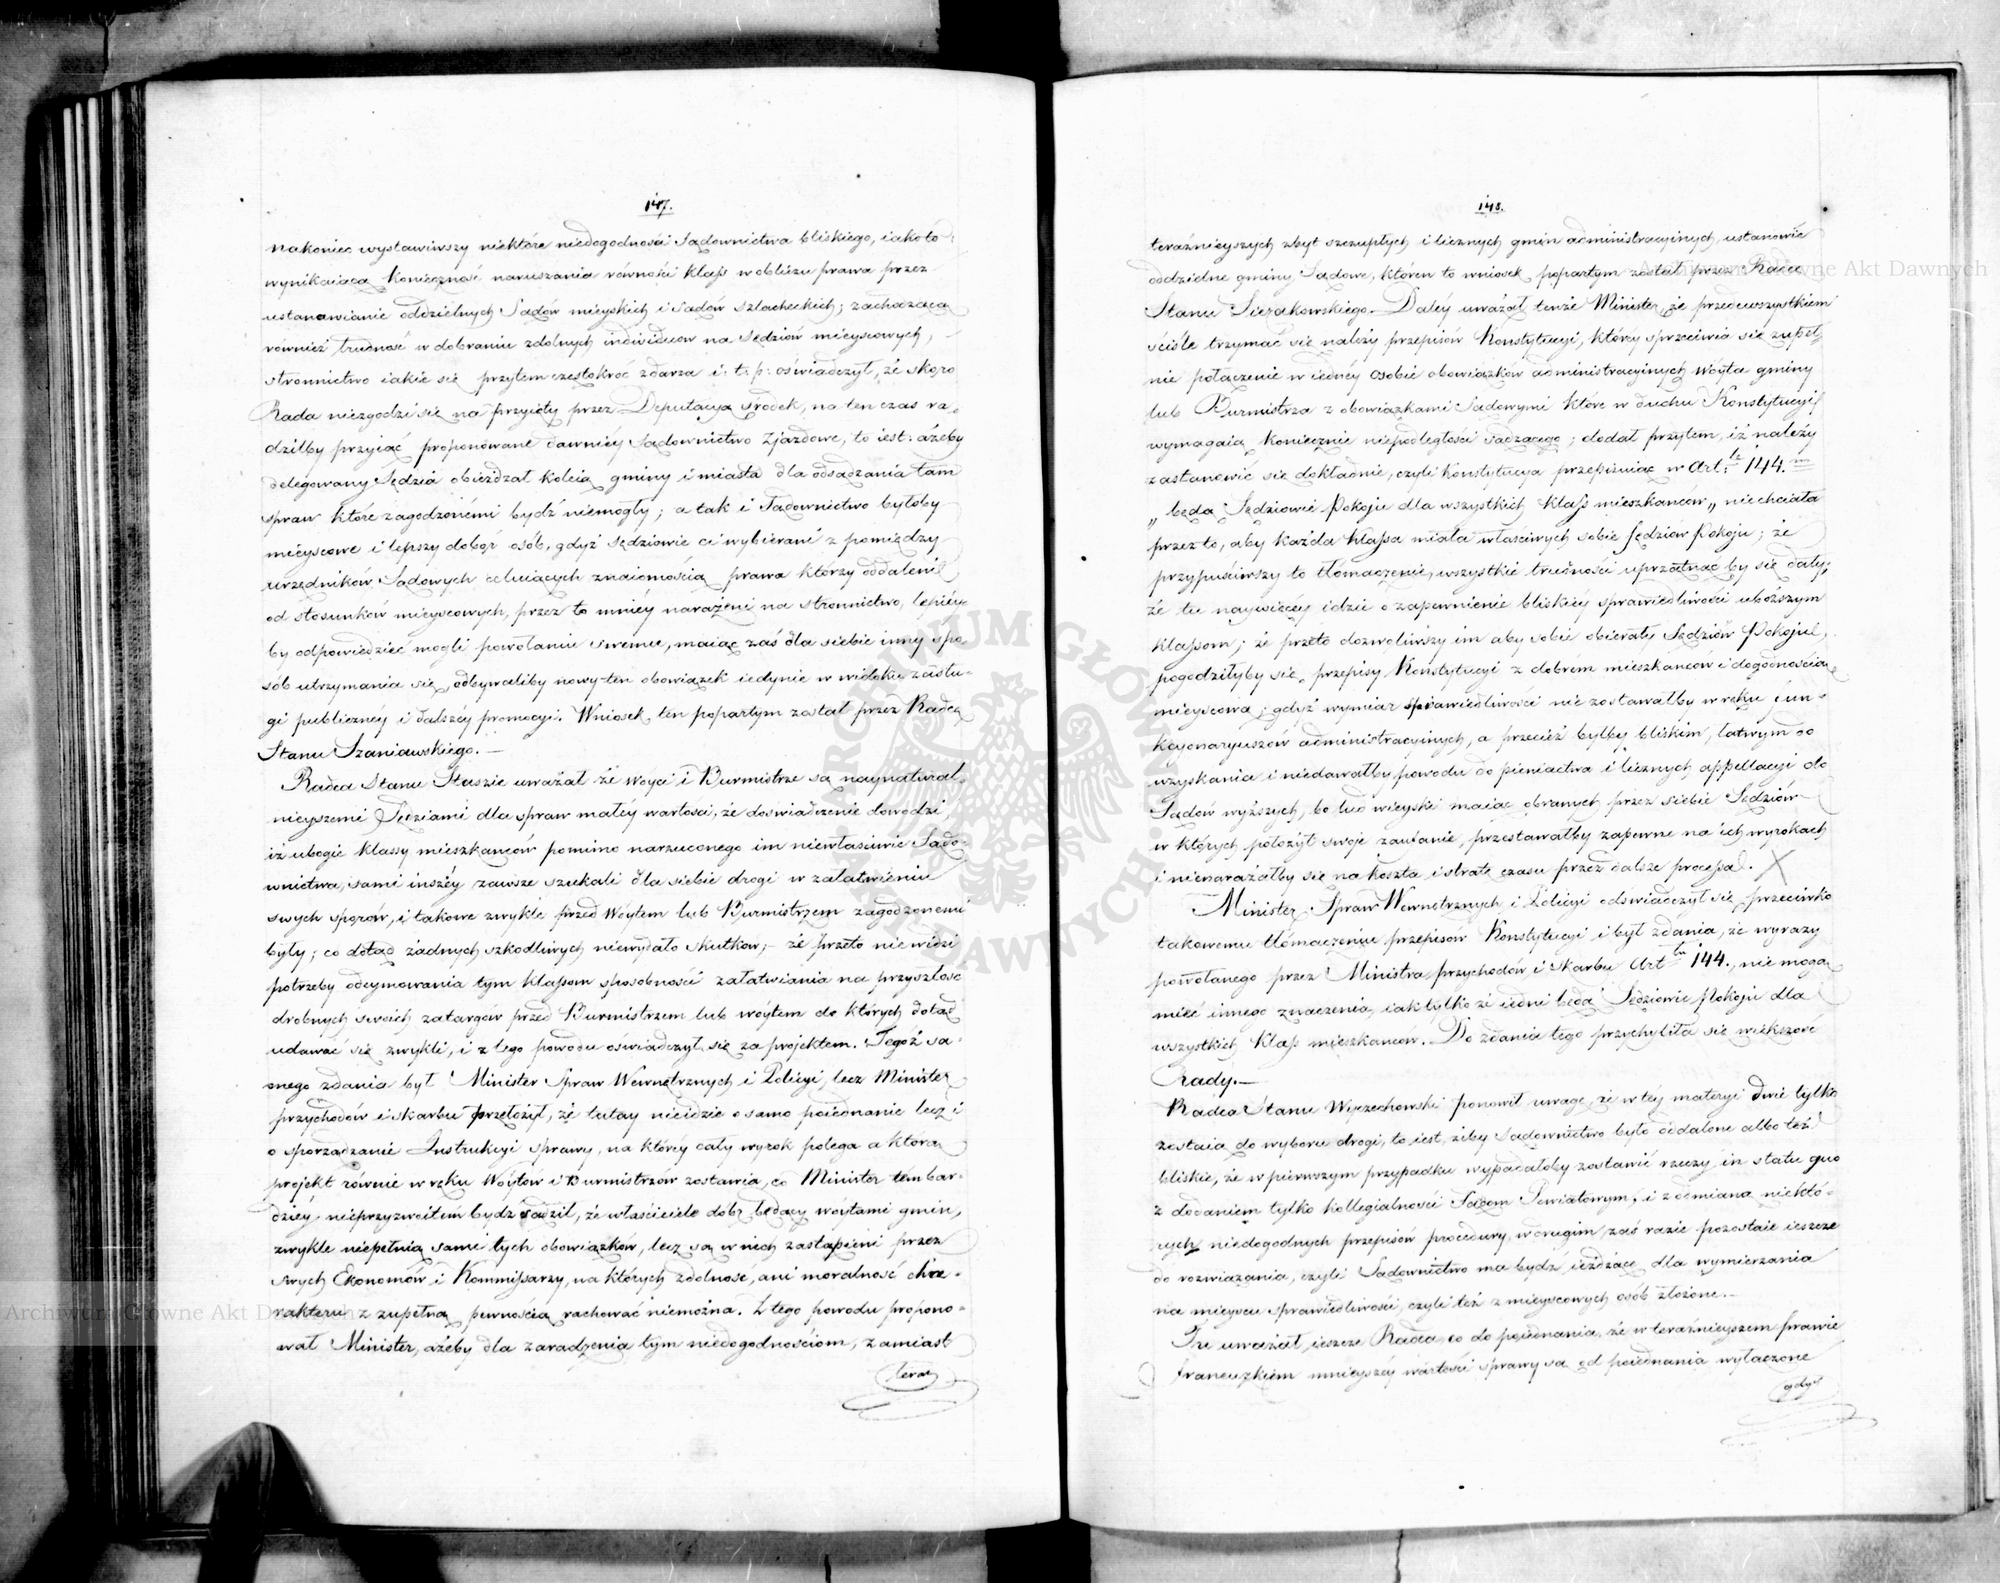 147.
nakoniec wystawiwszy niektóre niedogodności Sądownictwa bliskiego, iakoto:
wynikaiąca konieczność naruszania równości klass w obliczu prawa przez
ustanawianie oddzielnych Sądów mieyskich i Sądów szlacheckich; zachodząca
również trudność w dobraniu zdolnych individuow na Sędziów mieyscowych,
stronnictwo iakie się przytem częstokroć zdarza i: t: p: oświadczył, że skoro
Rada niezgodzi się na przyięty przez Deputacyą środek, na ten czas ra-
dziłby przyiąć proponowane dawniéy Sądownictwo Zjazdowe, to iest: ażeby
delegowany Sędzia obieżdżał koleią gminy i miasta dla odsądzania tam
spraw które zagodzonemi bydź niemogły; a tak i Sądownictwo byłoby
mieyscowe i lepszy dobór osób, gdyż Sędziowie ci wybierani z pomiędzy
urzędników Sądowych celuiących znaiomością prawa którzy oddaleni
od stosunków mieyscowych, przez to mniéy narażeni na stronnictwo, lepiéy-
by odpowiedzieć mogli powołaniu swemu, maiąc zaś dla siebie inny spo-
sób utrzymania się, odbywaliby nowy ten obowiązek iedynie w widoku zasłu-
gi publicznéy i dalszéy promocyi. Wniosek ten popartym został przez Radcę
Stanu Szaniawskiego. —
Radca Stanu Staszic uważał że Woyci i Burmistrze są naynatural-
nieyszemi Sędziami dla spraw małéy wartości, że doświadczenie dowodzi,
iż ubogie klassy mieszkańców pomimo narzuconego im niewłaściwie Sądo-
wnictwa, sami inszéy zawsze szukali dla siebie drogi w załatwieniu
swych sporów, i takowe zwykle przed Woytem lub Burmistrzem zagodzonemi
były; co dotąd żadnych szkodliwych niewydało skutków; – że przeto nie widzi
potrzeby odeymowania tym klassom sposobności załatwiania na przyszłość
drobnych swoich zatargów przed Burmistrzem lub wóytem do których dotąd
udawać się zwykli, i z tego powodu oswiadczył się za projektem. Tegoż sa-
mego zdania był Minister Spraw Wewnętrznych i Policyi, lecz Minister
przychodów i skarbu przełożył, że tutay nieidzie o samo poiednanie lecz i
o sporządzanie Instrukcyi sprawy, na któréy cały wyrok polega a którą
projekt równie w ręku Wóytow i Burmistrzów zostawia, co Minister tém bar-
dziéy nieprzyzwoitem bydz sądził, że właściciele dóbr będący wóytami gmin,
zwykle niepełnią sami tych obowiązków, lecz są w nich zastąpieni przez
swych Ekonomów i Kommissarzy, na których zdolność, ani moralność cha-
rakteru z zupełną pewnością rachować niemożna. Z tego powodu propono-
wał Minister, ażeby dla zaradzenia tym niedogodnościom, zamiast
teraz
148.
teraźnieyszych zbyt szczupłych i licznych gmin administracyinych, ustanowić
oddzielne gminy Sądowe, któren to wniosek popartym został przez Radcę
Stanu Sierakowskiego. Daléy uważał tenże Minister, że przedewszystkiem
ściśle trzymać się należy przepisów Konstytucyi, którey sprzeciwia się zupeł-
nie połączenie w iednéy osobie obowiązków administracyinych Wóyta gminy
lub Burmistrza z obowiązkami Sądowymi które w duchu Konstytucyi
wymagaią koniecznie niepodległości sądzącego; dodał przytem, iż należy
zastanowić się dokładnie, czyli Konstytucya przepisuiąc w Art: 144.
„ będą Sędziowie Pokoju dla wszystkich klass mieszkańców „ nie chciała
przez to, aby każda klassa miała właściwych sobie Sędziów Pokoju; że
przypuściwszy to tłómaczenie, wszystkie trudności uprzątnąć by się dały;
że tu naywięcéy idzie o zapewnienie bliskiéy sprawiedliwości uboższym
klassom; że przeto dozwoliwszy im aby sobie obierały Sędziów Pokoju,
pogodziłyby się przepisy Konstytucyi z dobrem mieszkańców i dogodnością
mieyscową; gdyż wymiar sprawiedliwości nie zostawałby w ręku fun-
kcyonaryuszów administracyinych, a przecież byłby bliskim, łatwym do
uzyskania i niedawałby powodu do pieniactwa i licznych appellacyi do
Sądów wyższych, bo lud wieyski maiąc obranych przez siebie Sędziów
w których położył swoje zaufanie, przestawałby zapewne na ich wyrokach
i nienarażałby się na koszta i stratę czasu przez dalsze processa.
Minister Spraw Wewnętrznych i Policyi oświadczył się przeciwko
takowemu tłómaczeniu przepisów Konstytucyi i był zdania, że wyrazy
powołanego przez Ministra przychodów i skarbu Art 144., nie mogą
mieć innego znaczenia, iak tylko że iedni będą Sędziowie Pokoju dla
wszystkich klass mieszkańców. Do zdania tego przychyliła się większość
Rady. —
Radca Stanu Wyczechowski ponowił uwagę, że w téy materyi dwie tylko
zostaią do wyboru drogi, to iest, żeby Sądownictwo było oddalone albo też
bliskie, że w pierwszym przypadku wypadałoby zostawić rzeczy in statu quo
z dodaniem tylko kollegialności Sądom Powiatowym, i z odmianą niektó-
rych niedogodnych przepisów procedury, w drugim zaś razie pozostaie ieszcze
do rozwiązania, czyli Sądownictwo ma bydź ieżdżące dla wymierzania
na mieyscu sprawiedliwości, czyli też z mieyscowych osób złożone. —
Tu uważał ieszcze Radca, co do poiednania, że w teraźnieyszem prawie
francuzkiem mnieyszéy wartości sprawy są od poiednania wyłączone
gdyż
Archiwum Główne Akt Dawnych
ARCHIWUM GŁÓWNE AKT DAWNYCH
Archiwum Główne Akt Dawnych